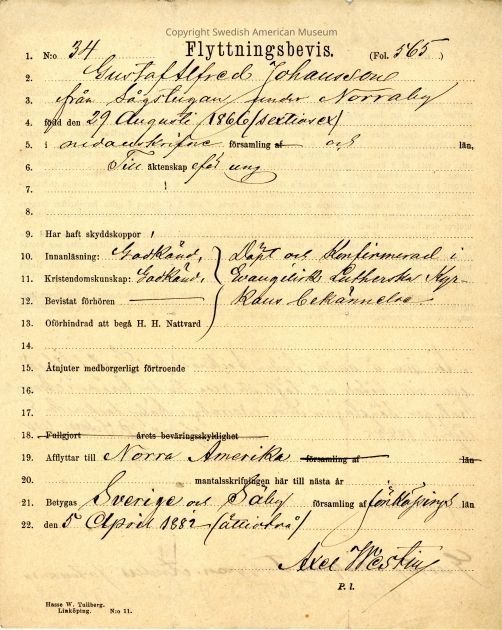 Copyright Swedish American Museum
1. N:o 34 Flyttningsbevis. (Fol. 565)
2. Gustaf Alfred Johansson
3. från Sågstugan under Norraby
4. född den 29 Augusti 1866 (sextiosex)
5. i nedanskrifne församling af och län,
6. Till äktenskap ung
7.
8.
9. Har haft skyddskoppor
10. Innanläsning: Godkänd, Döpt och Konfirmerad i
11. Kristendomskunskap: Godkänd, Evangelisk Lutherska Kyr-
12. Bevistat förhören kans bekännelse
13. Oförhindrad att begå H. H. Nattvard
14.
15. Åtnjuter medborgerligt förtroende
16.
17.
18. Fullgjort årets beväringsskyldighet
19. Afflyttar till Norra Amerika församling af län
20. mantalsskrifningen här till nästa år
21. Betygas Sverige och Säby församling af Jönköpings län
22. den 5 April 1882 (åttiotvå)
Axel Westin
P. l.
Hasse W. Tullberg.
Linköping. N:o 11.